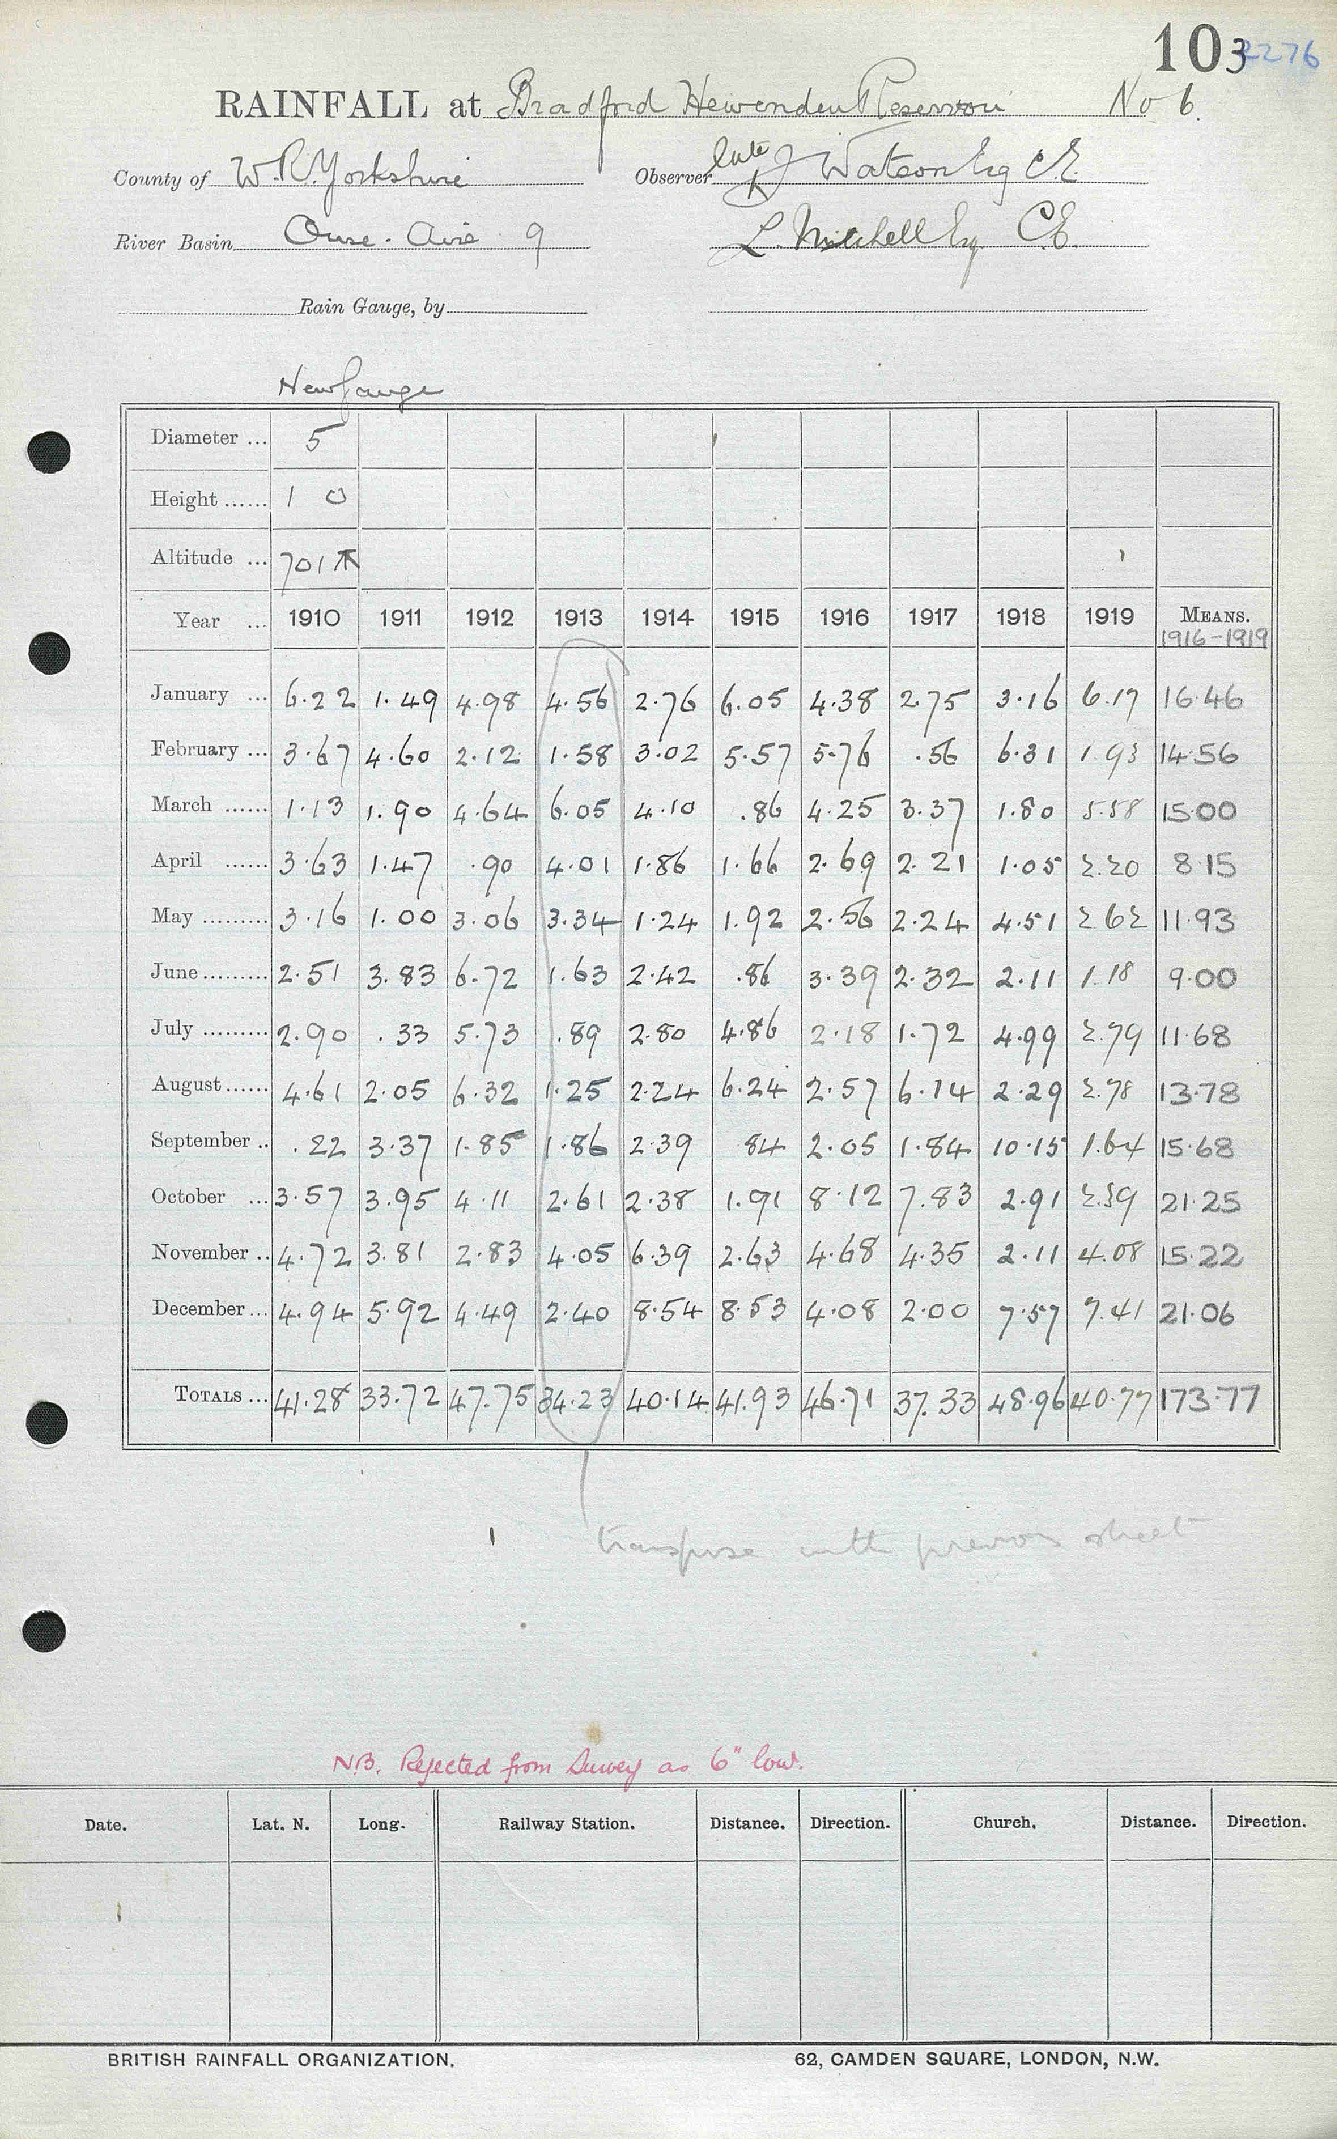 103 2276
RAINFALL at Bradford Hewenden Reservoir No 6
County of W.R. Yorkshire Observer late J Watson Esq C.E.
River Basin Ouse. Aire 9 L. Mitchell Esq C.E.
Rain Gauge, by
New Gauge
Diameter ... 5
Height ...... 1 0
Altitude ... 701
Year ... 1910 1911 1912 1913 1914 1915 1916 1917 1918 1919 MEANS.
1916-1919
January ... 6.22 1.49 4.98 4.56 2.76 6.05 4.38 2.75 3.16 6.17 16.46
February ... 3.67 4.60 2.12 1.58 3.02 5.57 5.76 .56 6.31 1.93 14.56
March ...... 1.13 1.90 4.64 6.05 4.10 .86 4.25 3.37 1.80 5.58 15.00
April ...... 3.63 1.47 .90 4.01 1.86 1.66 2.69 2.21 1.05 2.20 8.15
May ......... 3.16 1.00 3.06 3.34 1.24 1.92 2.56 2.24 4.51 2.62 11.93
June ......... 2.51 3.83 6.72 1.63 2.42 .86 3.39 2.32 2.11 1.18 9.00
July ......... 2.90 .33 5.73 .89 2.80 4.86 2.18 1.72 4.99 2.79 11.68
August ...... 4.61 2.05 6.32 1.25 2.24 6.24 2.57 6.14 2.29 2.78 13.78
September .. .22 3.37 1.85 1.86 2.39 84 2.05 1.84 10.15 1.64 15.68
October ... 3.57 3.95 4.11 2.61 2.38 1.91 8.12 7.83 2.91 2.39 21.25
November .. 4.72 3.81 2.83 4.05 6.39 2.63 4.68 4.35 2.11 4.08 15.22
December ... 4.94 5.92 4.49 2.40 8.54 8.53 4.08 2.00 7.57 7.41 21.06
TOTALS ... 41.28 33.72 47.75 34.23 40.14 41.93 46.71 37.33 48.96 40.77 173.77
transpose with previous sheet
N.B. Rejected from Survey as 6" low.
Date. Lat. N. Long. Railway Station. Distance. Direction. Church. Distance. Direction.
BRITISH RAINFALL ORGANIZATION. 62, CAMDEN SQUARE, LONDON, N.W.